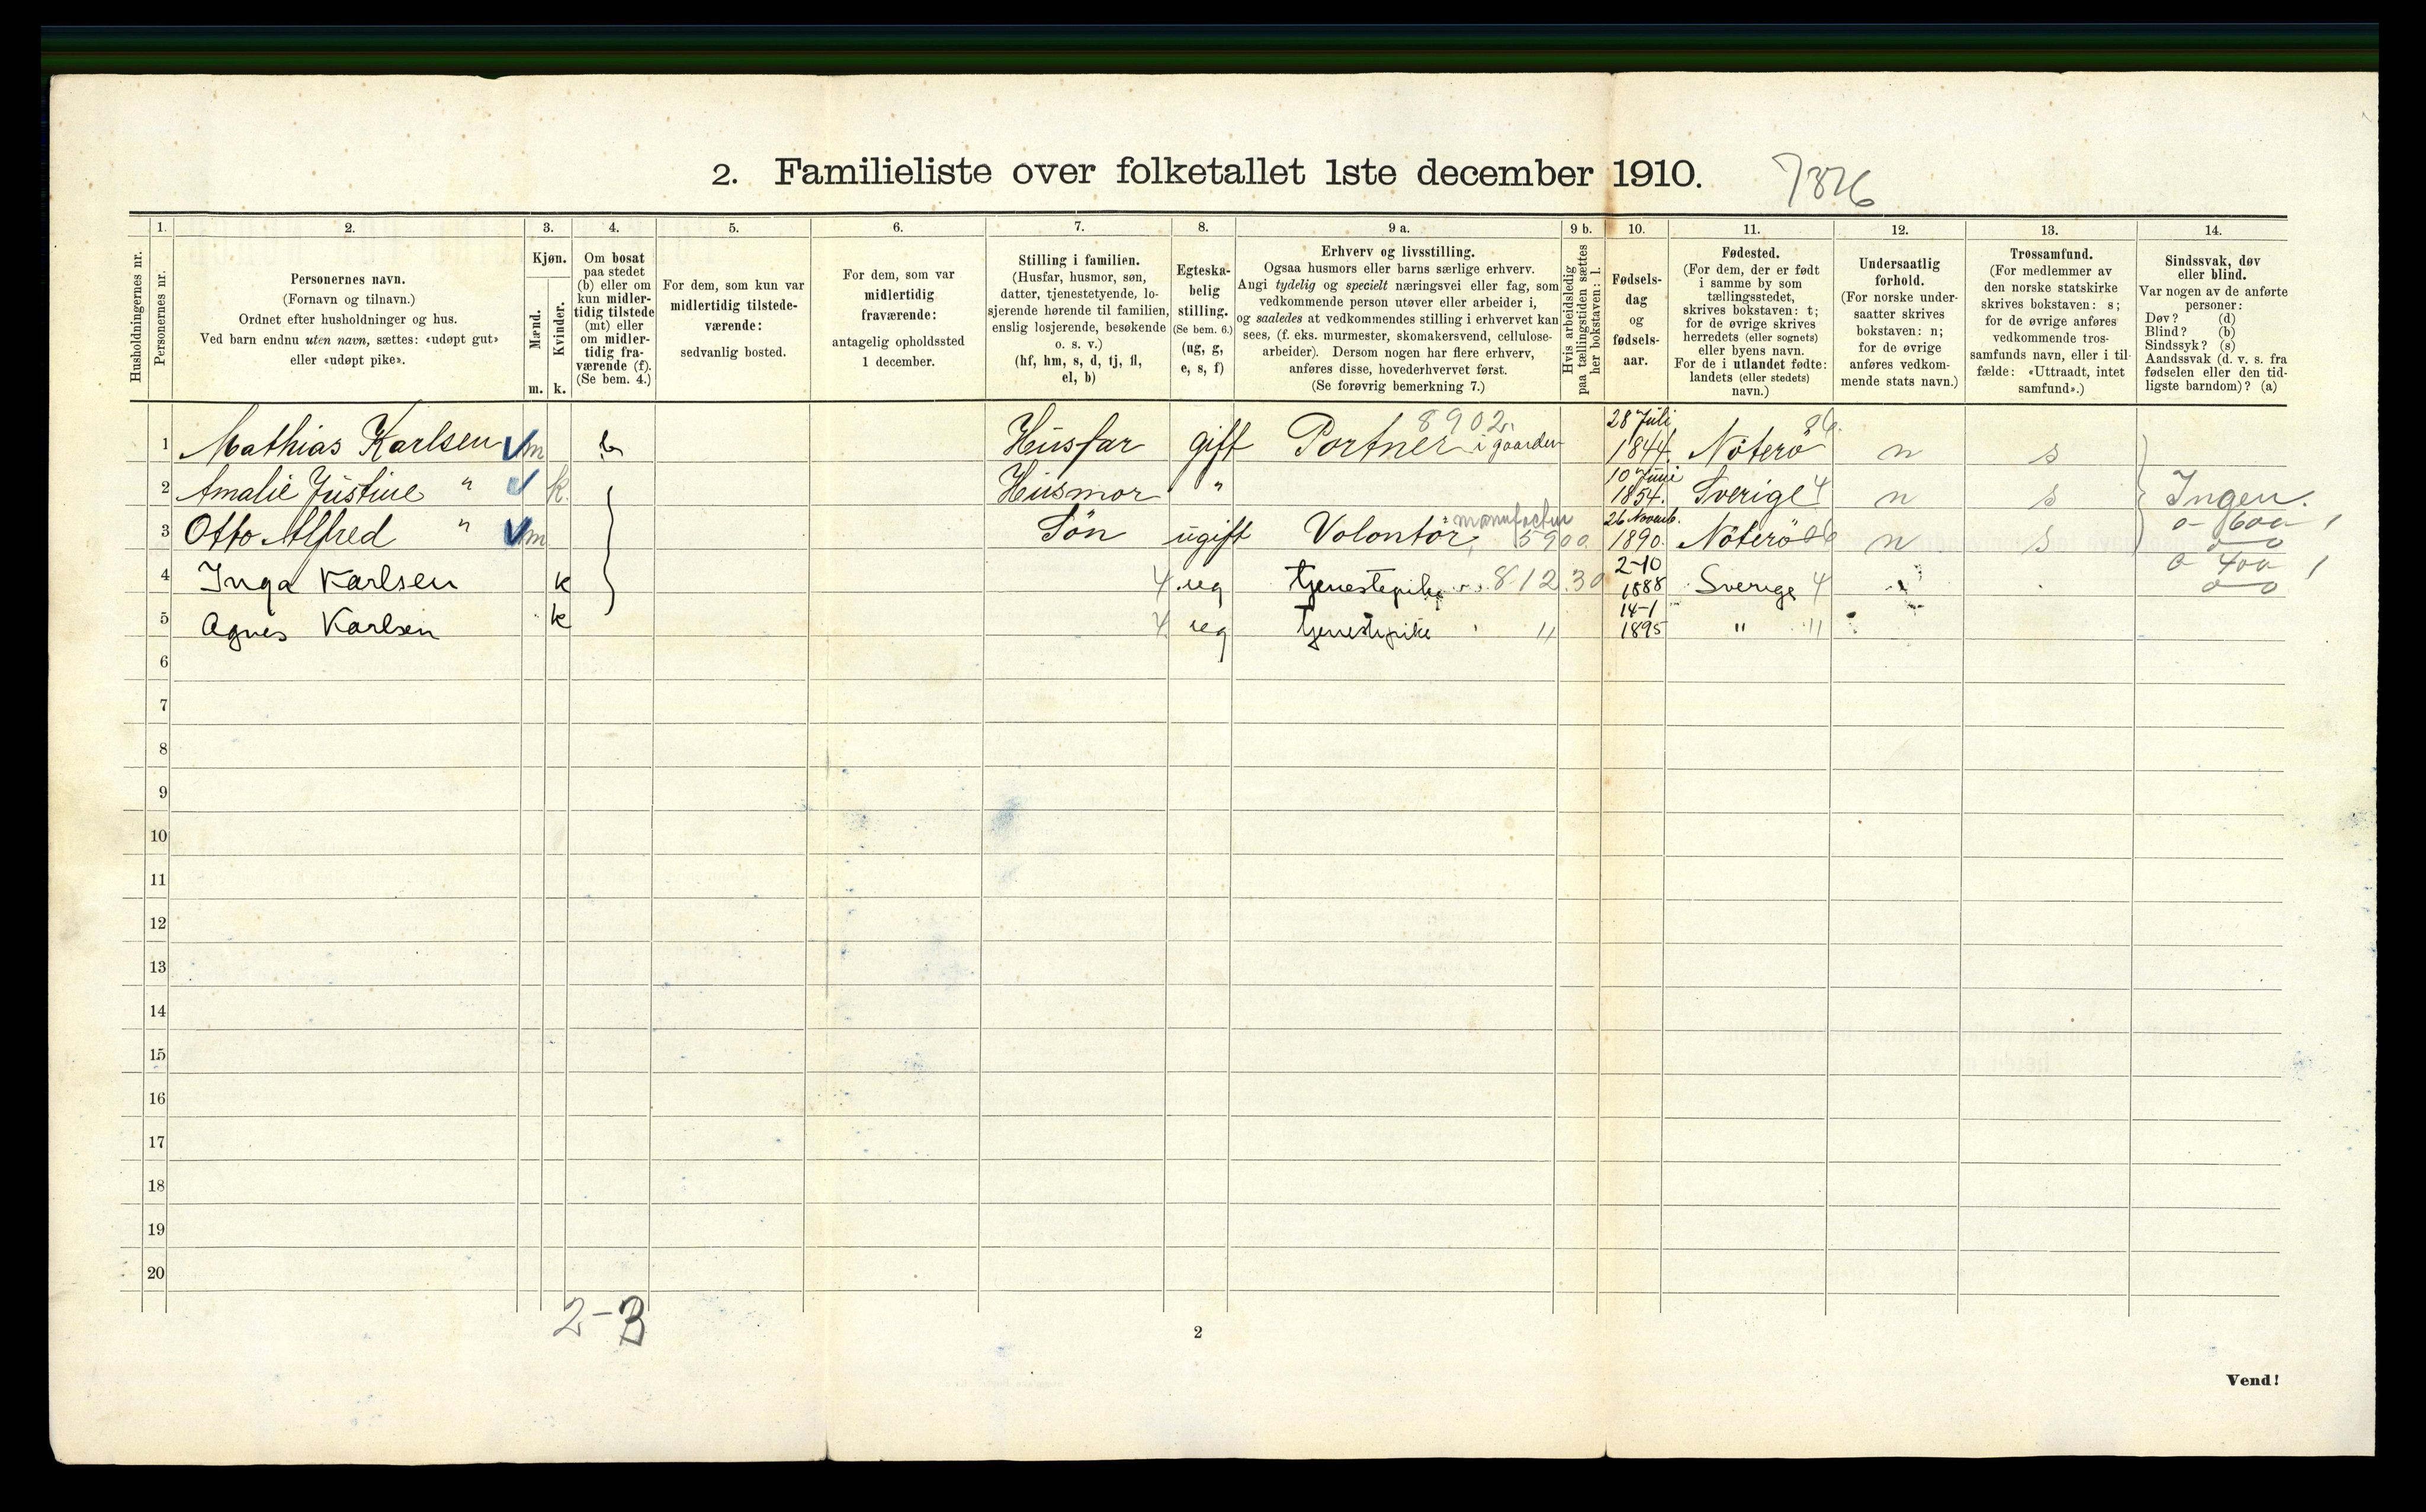 2. Familieliste over folketallet 1ste december 1910.
1. 2. 3. 4. 5. 6. 7. 8. 9 a. 9 b. 10. 11. 12. 13. 14.
Husholdningernes nr.
Personernes nr.
Personernes navn.
(Fornavn og tilnavn.)
Ordnet efter husholdninger og hus.
Ved barn endnu uten navn, sættes: «udøpt gut»
eller «udøpt pike».
Kjøn.
Mænd.
m.
Kvinder.
k.
Om bosat
paa stedet
(b) eller om
kun midler-
tidig tilstede
(mt) eller
om midler-
tidig fra-
værende (f).
(Se bem. 4.)
For dem, som kun var
midlertidig tilstede-
værende:
sedvanlig bosted.
For dem, som var
midlertidig
fraværende:
antagelig opholdssted
1 december.
Stilling i familien.
(Husfar, husmor, søn,
datter, tjenestetyende, lo-
sjerende hørende til familien,
enslig losjerende, besøkende
o. s. v.)
(hf, hm, s, d, tj, fl,
el, b)
Egteska-
belig
stilling.
(Se bem. 6.)
(ug, g,
e, s, f)
Erhverv og livsstilling.
Ogsaa husmors eller barns særlige erhverv.
Angi tydelig og specielt næringsvei eller fag, som
vedkommende person utøver eller arbeider i,
og saaledes at vedkommendes stilling i erhvervet kan
sees, (f. eks. murmester, skomakersvend, cellulose-
arbeider). Dersom nogen har flere erhverv,
anføres disse, hovederhvervet først.
(Se forøvrig bemerkning 7.)
Hvis arbeidsledig
paa tællingstiden sættes
her bokstaven: l.
Fødsels-
dag
og
fødsels-
aar.
Fødested.
(For dem, der er født
i samme by som
tællingsstedet,
skrives bokstaven: t;
for de øvrige skrives
herredets (eller sognets)
eller byens navn.
For de i utlandet fødte:
landets (eller stedets)
navn.)
Undersaatlig
forhold.
(For norske under-
saatter skrives
bokstaven: n;
for de øvrige
anføres vedkom-
mende stats navn.)
Trossamfund.
(For medlemmer av
den norske statskirke
skrives bokstaven: s;
for de øvrige anføres
vedkommende tros-
samfunds navn, eller i til-
fælde: «Uttraadt, intet
samfund».)
Sindssvak, døv
eller blind.
Var nogen av de anførte
personer:
Døv? (d)
Blind? (b)
Sindssyk? (s)
Aandssvak (d. v. s. fra
fødselen eller den tid-
ligste barndom)? (a)
1 Mathias Karlsen m b Husfar gift Portner i gaarden 8902 28 Juli 1844. Nøterö 86. n s
2 Amalie Justine " k. Husmor " 10 Juni 1854. Sverige 4 n s Ingen.
3 Otto Alfred " m Søn ugift Volontör, manufactur 5900 26 Novemb. 1890. Nøterö 86 n s 600
4 Inga Karlsen k 4 ug tjenestepike 812.30 2-10 1888 Sverige 4 400
5 Agnes Karlsen k 4 ug tjenestepike " 14-1 1895 " "
6
7
8
9
10
11
12
13
14
15
16
17
18
19
20
2-3
2
Vend!